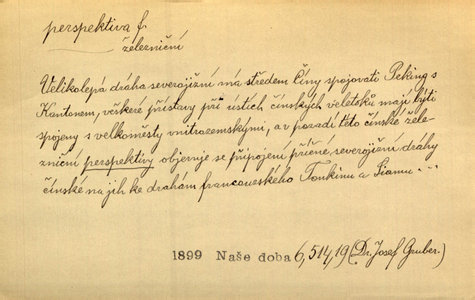 perspektiva f.
železniční
Velikolepá dráha severojižní má středem Číny spojovati Peking s
Kantonem, veškeré přístavy při ústích čínských veletoků mají býti
spojeny s velkoměsty vnitrozemskými, a v pozadí této čínské žele-
zniční perspektivy objevuje se připojení příčné severojižní dráhy
čínské na jih ke drahám francouzského Tonkinu a Siamu. --
1899 Naše doba 6, 514/19 (Dr. Josef Gruber.)